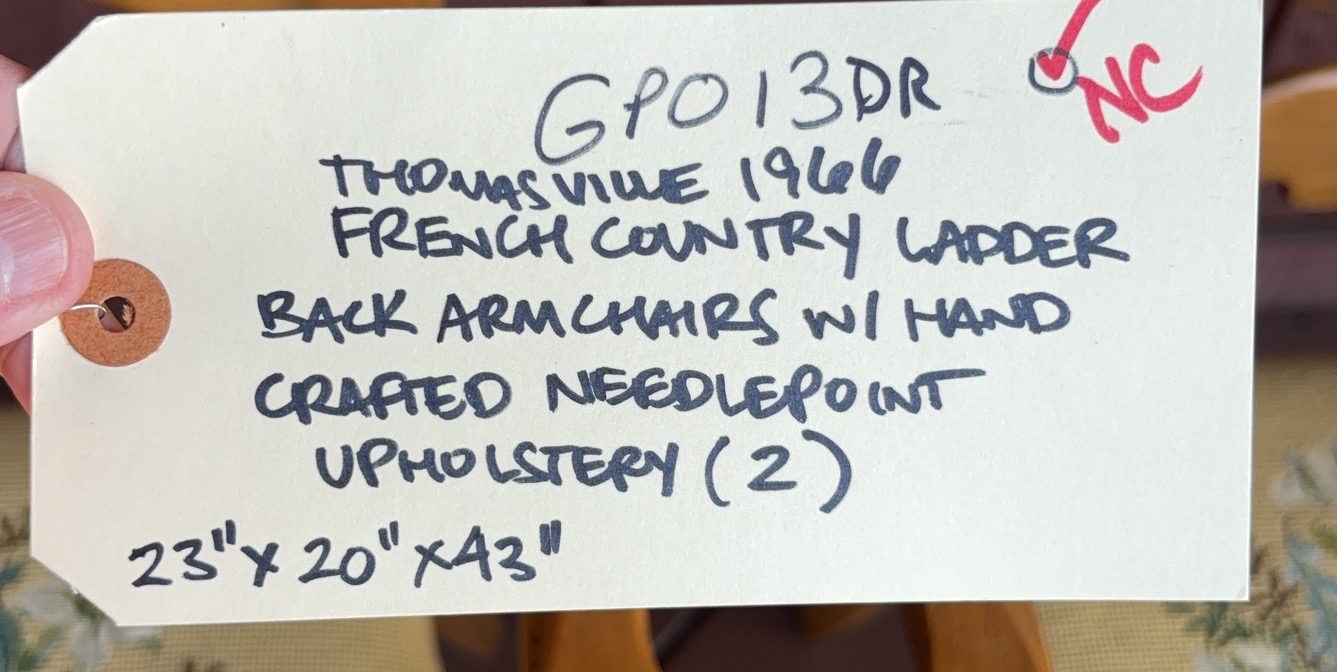 GP013DR
NC
THOMASVILLE 1966
FRENCH COUNTRY LADDER
BACK ARMCHAIRS W/ HAND
CRAFTED NEEDLEPOINT
UPHOLSTERY (2)
23" x 20" x 43"